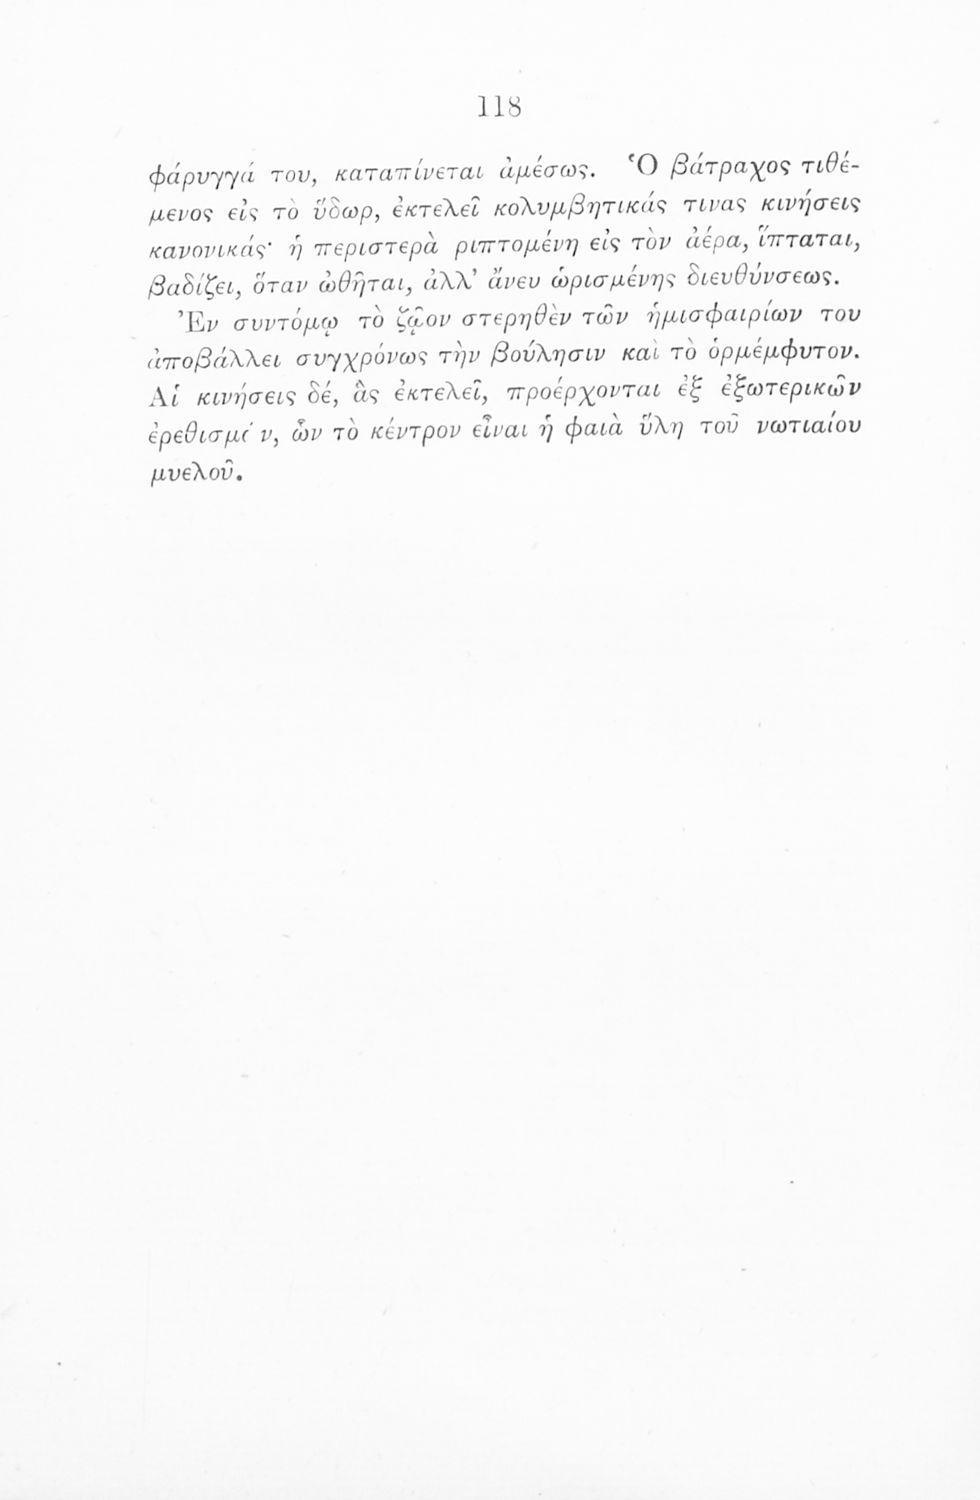 118
φάρυγγά του, καταπίνεται ἀμέσως. Ὁ βάτραχος τιθέ-
μενος εἰς τὸ ὕδωρ, ἐκτελεῖ κολυμβητικάς τινας κινήσεις
κανονικάς· ἡ περιστερὰ ριπτομένη εἰς τὸν ἀέρα, ἵπταται,
βαδίζει, ὅταν ὠθῆται, ἀλλ’ ἄνευ ὡρισμένης διευθύνσεως.
Ἐν συντόμῳ τὸ ζῷον στερηθὲν τῶν ἡμισφαιρίων του
ἀποβάλλει συγχρόνως τὴν βούλησιν καὶ τὸ ὁρμέμφυτον.
Αἱ κινήσεις δέ, ἃς ἐκτελεῖ, προέρχονται ἐξ ἐξωτερικῶν
ὧν τὸ κέντρον εἶναι ἡ φαιὰ ὕλη τοῦ νωτιαίου
μυελοῦ.